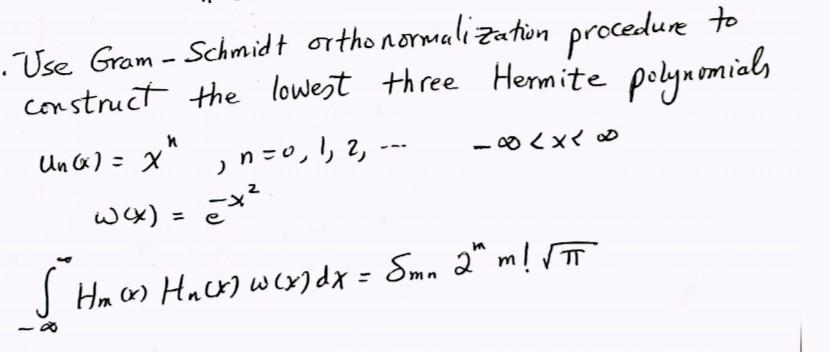 . Use Gram - Schmidt orthonormalization procedure to
construct the lowest three Hermite polynomials
Un(x) = x^n , n=0, 1, 2, --- -∞ < x < ∞
w(x) = e^{-x^2}
∫_{-∞}^{∞} Hm(x) Hn(x) w(x) dx = δmn 2^m m! √π